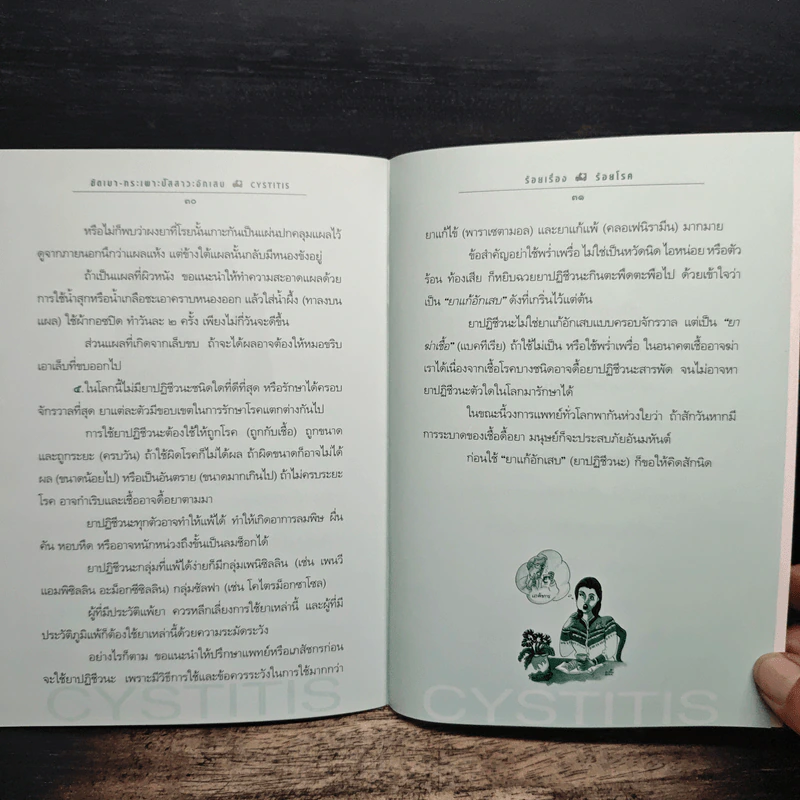 ขัดเบา-กระเพาะปัสสาวะอักเสบ CYSTITIS
๓๐
หรือไม่ก็พบว่าผงยาที่โรยนั้นเกาะกันเป็นแผ่นปกคลุมแผลไว้
ดูจากภายนอกนึกว่าแผลแห้ง แต่ข้างใต้แผลนั้นกลับมีหนองขังอยู่
ถ้าเป็นแผลที่ผิวหนัง ขอแนะนำให้ทำความสะอาดแผลด้วย
การใช้น้ำสุกหรือน้ำเกลือชะเอาคราบหนองออก แล้วใส่น้ำผึ้ง (ทาลงบน
แผล) ใช้ผ้ากอซปิด ทำวันละ ๒ ครั้ง เพียงไม่กี่วันจะดีขึ้น
ส่วนแผลที่เกิดจากเล็บขบ ถ้าจะได้ผลอาจต้องให้หมอขริบ
เอาเล็บที่ขบออกไป
๕. ในโลกนี้ไม่มียาปฏิชีวนะชนิดใดที่ดีที่สุด หรือรักษาได้ครอบ
จักรวาลที่สุด ยาแต่ละตัวมีขอบเขตในการรักษาโรคแตกต่างกันไป
การใช้ยาปฏิชีวนะต้องใช้ให้ถูกโรค (ถูกกับเชื้อ) ถูกขนาด
และถูกระยะ (ครบวัน) ถ้าใช้ผิดโรคก็ไม่ได้ผล ถ้าผิดขนาดก็อาจไม่ได้
ผล (ขนาดน้อยไป) หรือเป็นอันตราย (ขนาดมากเกินไป) ถ้าไม่ครบระยะ
โรค อาจกำเริบและเชื้ออาจดื้อยาตามมา
ยาปฏิชีวนะทุกตัวอาจทำให้แพ้ได้ ทำให้เกิดอาการลมพิษ ผื่น
คัน หอบหืด หรืออาจหนักหน่วงถึงขั้นเป็นลมช็อกได้
ยาปฏิชีวนะกลุ่มที่แพ้ได้ง่ายก็มีกลุ่มเพนิซิลลิน (เช่น เพนวี
แอมพิซิลลิน อะม็อกซีซิลลิน) กลุ่มซัลฟา (เช่น โคไตรม็อกซาโซล)
ผู้ที่มีประวัติแพ้ยา ควรหลีกเลี่ยงการใช้ยาเหล่านี้ และผู้ที่มี
ประวัติภูมิแพ้ก็ต้องใช้ยาเหล่านี้ด้วยความระมัดระวัง
อย่างไรก็ตาม ขอแนะนำให้ปรึกษาแพทย์หรือเภสัชกรก่อน
จะใช้ยาปฏิชีวนะ เพราะมีวิธีการใช้และข้อควรระวังในการใช้มากกว่า
CYSTITIS
ร้อยเรื่อง ร้อยโรค
๓๑
ยาแก้ไข้ (พาราเซตามอล) และยาแก้แพ้ (คลอเฟนิรามีน) มากมาย
ข้อสำคัญอย่าใช้พร่ำเพรื่อ ไม่ใช่เป็นหวัดนิด ไอหน่อย หรือตัว
ร้อน ท้องเสีย ก็หยิบฉวยยาปฏิชีวนะกินตะพืดตะพือไป ด้วยเข้าใจว่า
เป็น “ยาแก้อักเสบ” ดังที่เกริ่นไว้แต่ต้น
ยาปฏิชีวนะไม่ใช่ยาแก้อักเสบแบบครอบจักรวาล แต่เป็น “ยา
ฆ่าเชื้อ” (แบคทีเรีย) ถ้าใช้ไม่เป็น หรือใช้พร่ำเพรื่อ ในอนาคตเชื้ออาจฆ่า
เราได้เนื่องจากเชื้อโรคบางชนิดอาจดื้อยาปฏิชีวนะสารพัด จนไม่อาจหา
ยาปฏิชีวนะตัวใดในโลกมารักษาได้
ในขณะนี้วงการแพทย์ทั่วโลกพากันห่วงใยว่า ถ้าสักวันหากมี
การระบาดของเชื้อดื้อยา มนุษย์ก็จะประสบภัยอันมหันต์
ก่อนใช้ “ยาแก้อักเสบ” (ยาปฏิชีวนะ) ก็ขอให้คิดสักนิด
CYSTITIS